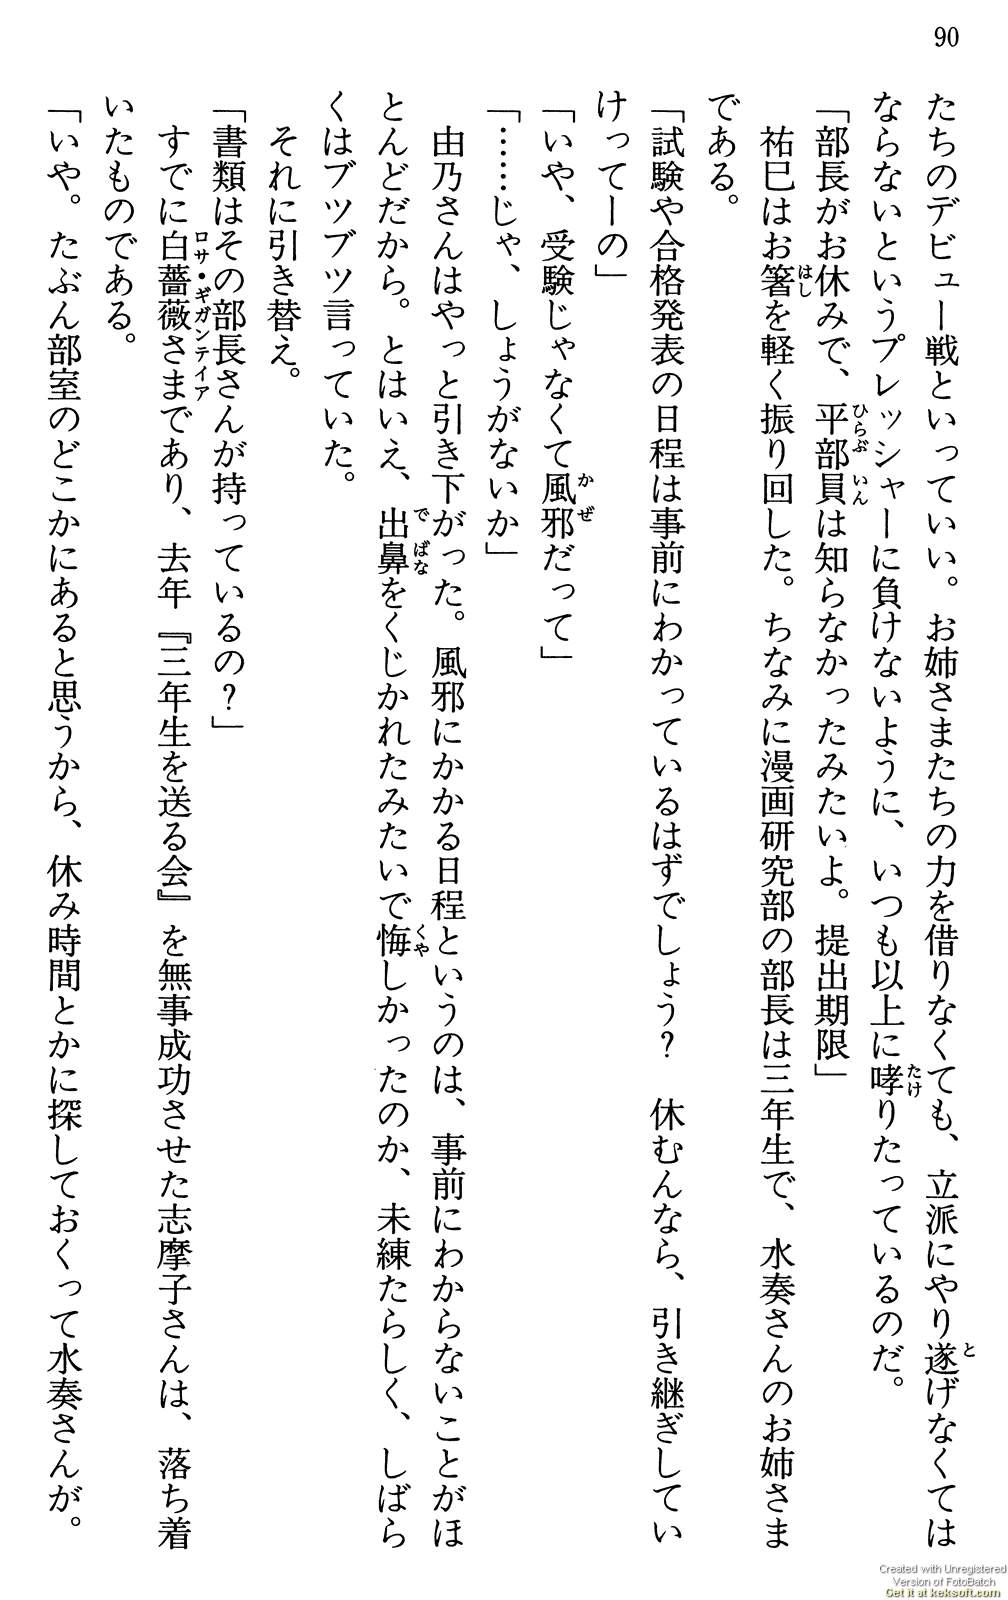 90
たちのデビュー戦といっていい。お姉さまたちの力を借りなくても、立派にやり遂げなくては
ならないというプレッシャーに負けないように、いつも以上に哮りたっているのだ。
「部長がお休みで、平部員は知らなかったみたいよ。提出期限」
祐巳はお箸を軽く振り回した。ちなみに漫画研究部の部長は三年生で、水奏さんのお姉さま
である。
「試験や合格発表の日程は事前にわかっているはずでしょう? 休むんなら、引き継ぎしてい
けってーの」
「いや、受験じゃなくて風邪だって」
「……じゃ、しょうがないか」
由乃さんはやっと引き下がった。風邪にかかる日程というのは、事前にわからないことがほ
とんどだから。とはいえ、出鼻をくじかれたみたいで悔しかったのか、未練たらしく、しばら
くはブツブツ言っていた。
それに引き替え。
「書類はその部長さんが持っているの?」
すでに白薔薇さまであり、去年『三年生を送る会』を無事成功させた志摩子さんは、落ち着
いたものである。
「いや。たぶん部室のどこかにあると思うから、休み時間とかに探しておくって水奏さんが。
Created with Unregistered
Version of FotoBatch
Get it at keksoft.com